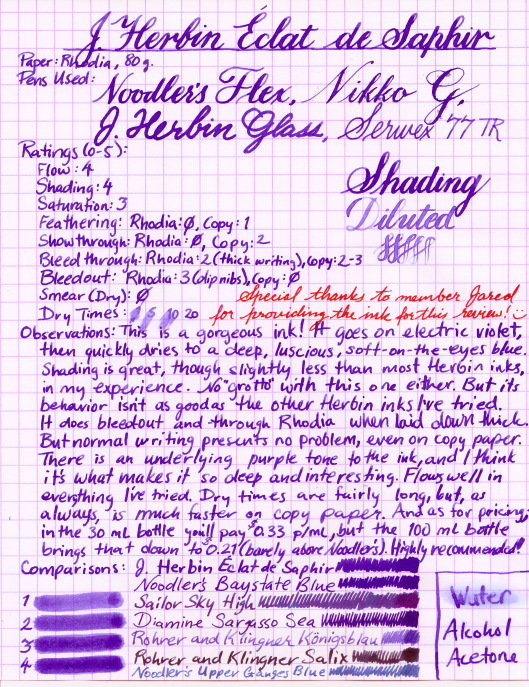 J. Herbin Éclat de Saphir
Paper: Rhodia, 80g.
Pens Used:
Noodler's Flex, Nikko G,
J. Herbin Glass, Serwex 77TR
Ratings (0-5):
Flow: 4
Shading: 4
Saturation: 3
Feathering: Rhodia: Ø, Copy: 1
Showthrough: Rhodia: Ø, Copy: 2
Bleedthrough: Rhodia: 2 (thick writing), copy: 2-3
Bleedout: Rhodia: 3 (dip nibs), Copy: Ø
Smear (Dry): Ø
Dry Times: 10 20
Shading
Diluted
Special thanks to member Jared
for providing the ink for this review! :)
Observations: This is a gorgeous ink! It goes on electric violet,
then quickly dries to a deep, luscious, soft-on-the-eyes blue.
Shading is great, though slightly less than most Herbin inks,
in my experience. No "grotto" with this one either. But its
behavior isn't as good as the other Herbin inks I've tried.
It does bleedout and through Rhodia when laid down thick.
But normal writing presents no problem, even on copy paper.
There is an underlying purple tone to the ink, and I think
it's what makes it so deep and interesting. Flows well in
everything I've tried. Dry times are fairly long, but, as
always, is much faster on copy paper. And as for pricing,
in the 30 ml bottle you'll pay $0.33 p/ml, but the 100 ml bottle
brings that down to $0.21 (barely above Noodler's). Highly recommended!!
Comparisons: J. Herbin Éclat de Saphir
Noodler's Baystate Blue
Sailor Sky High
Diamine Sargasso Sea
Rohrer and Klingner Königsblau
Rohrer and Klingner Salix
Noodler's Upper Ganges Blue
1
2
3
4
Water
Alcohol
Acetone